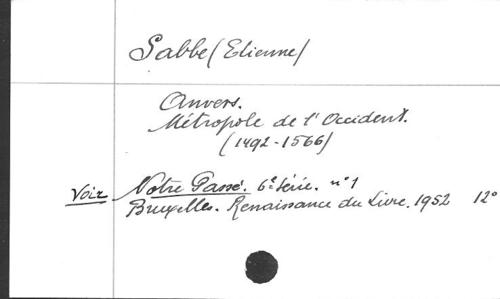 Sabbe (Etienne)
Anvers.
Métropole de l'Occident.
(1492-1566)
Voir Notre Passé. 6e série. n° 1
Bruxelles. Renaissance du Livre. 1952 12°